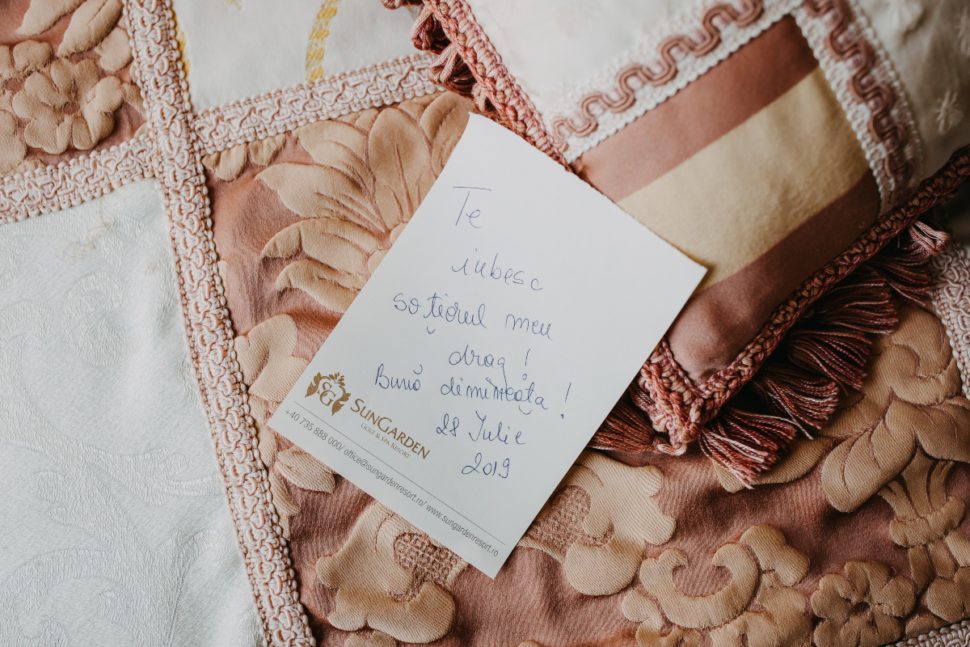 Te
iubesc
soțiorul meu
drag!
Bună dimineața!
28 Iulie
2019
SG
SunGarden
Golf & Spa Resort
+40 735 888 000/ office@sungardenresort.ro/ www.sungardenresort.ro